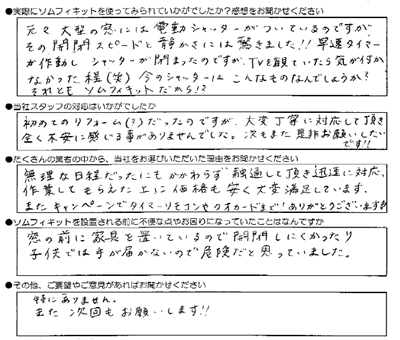 ●実際にソムフィキットを使ってみられていかがでしたか？感想をお聞かせください
元々大型の窓には電動シャッターがついているのですが、
その開閉スピードと静かさには驚きました!! 早速タイマー
が作動しシャッターが閉まったのですが、TVを観ていたら気が付か
なかった様(笑) 今のシャッターはこんなものなんでしょうか?
それともソムフィキットだから!?
●当社スタッフの対応はいかがでしたか
初めてのリフォーム(?)だったのですが、大変丁寧に対応して頂き
全く不安に感じる事がありませんでした。次もまた是非お願いしたい
です!!
●たくさんの業者の中から、当社をお選びいただいた理由をお聞かせください
無理な日程だったにもかかわらず融通して頂き迅速に対応、
作業してもらえた上に価格も安く大変満足しています。
またキャンペーンでタイマーリモコンやクオカードまで!ありがとうございます
●ソムフィキットを設置される前に不便な点やお困りになっていたことはなんですか
窓の前に家具を置いているので開閉しにくかったり
子供では手が届かないので危険だと思っていました。
●その他、ご要望やご意見があればお聞かせください
特にありません。
また次回もお願いします!!